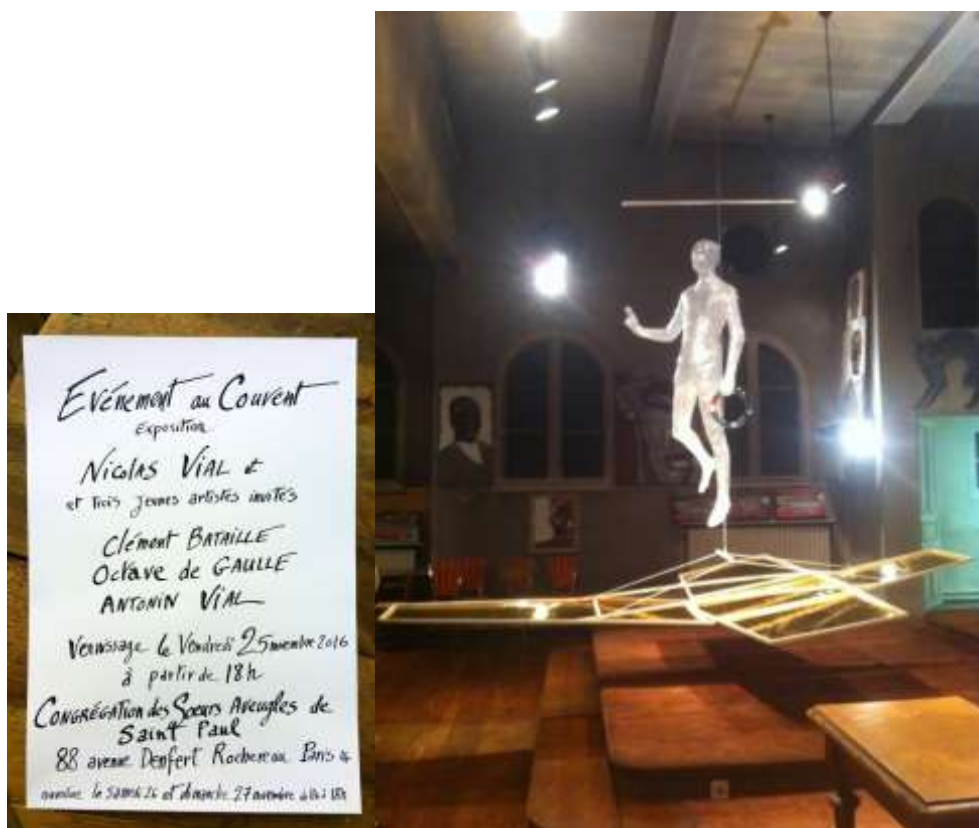 Evénement au Couvent
Exposition
Nicolas VIAL et
et trois jeunes artistes invités
Clément BATAILLE
Octave de GAULLE
ANTONIN VIAL
Vernissage le Vendredi 25 novembre 2016
à partir de 18h
CONGRÉGATION des Soeurs Aveugles de
Saint Paul
88 avenue Denfert Rochereau Paris 14
le samedi 26 et dimanche 27 novembre